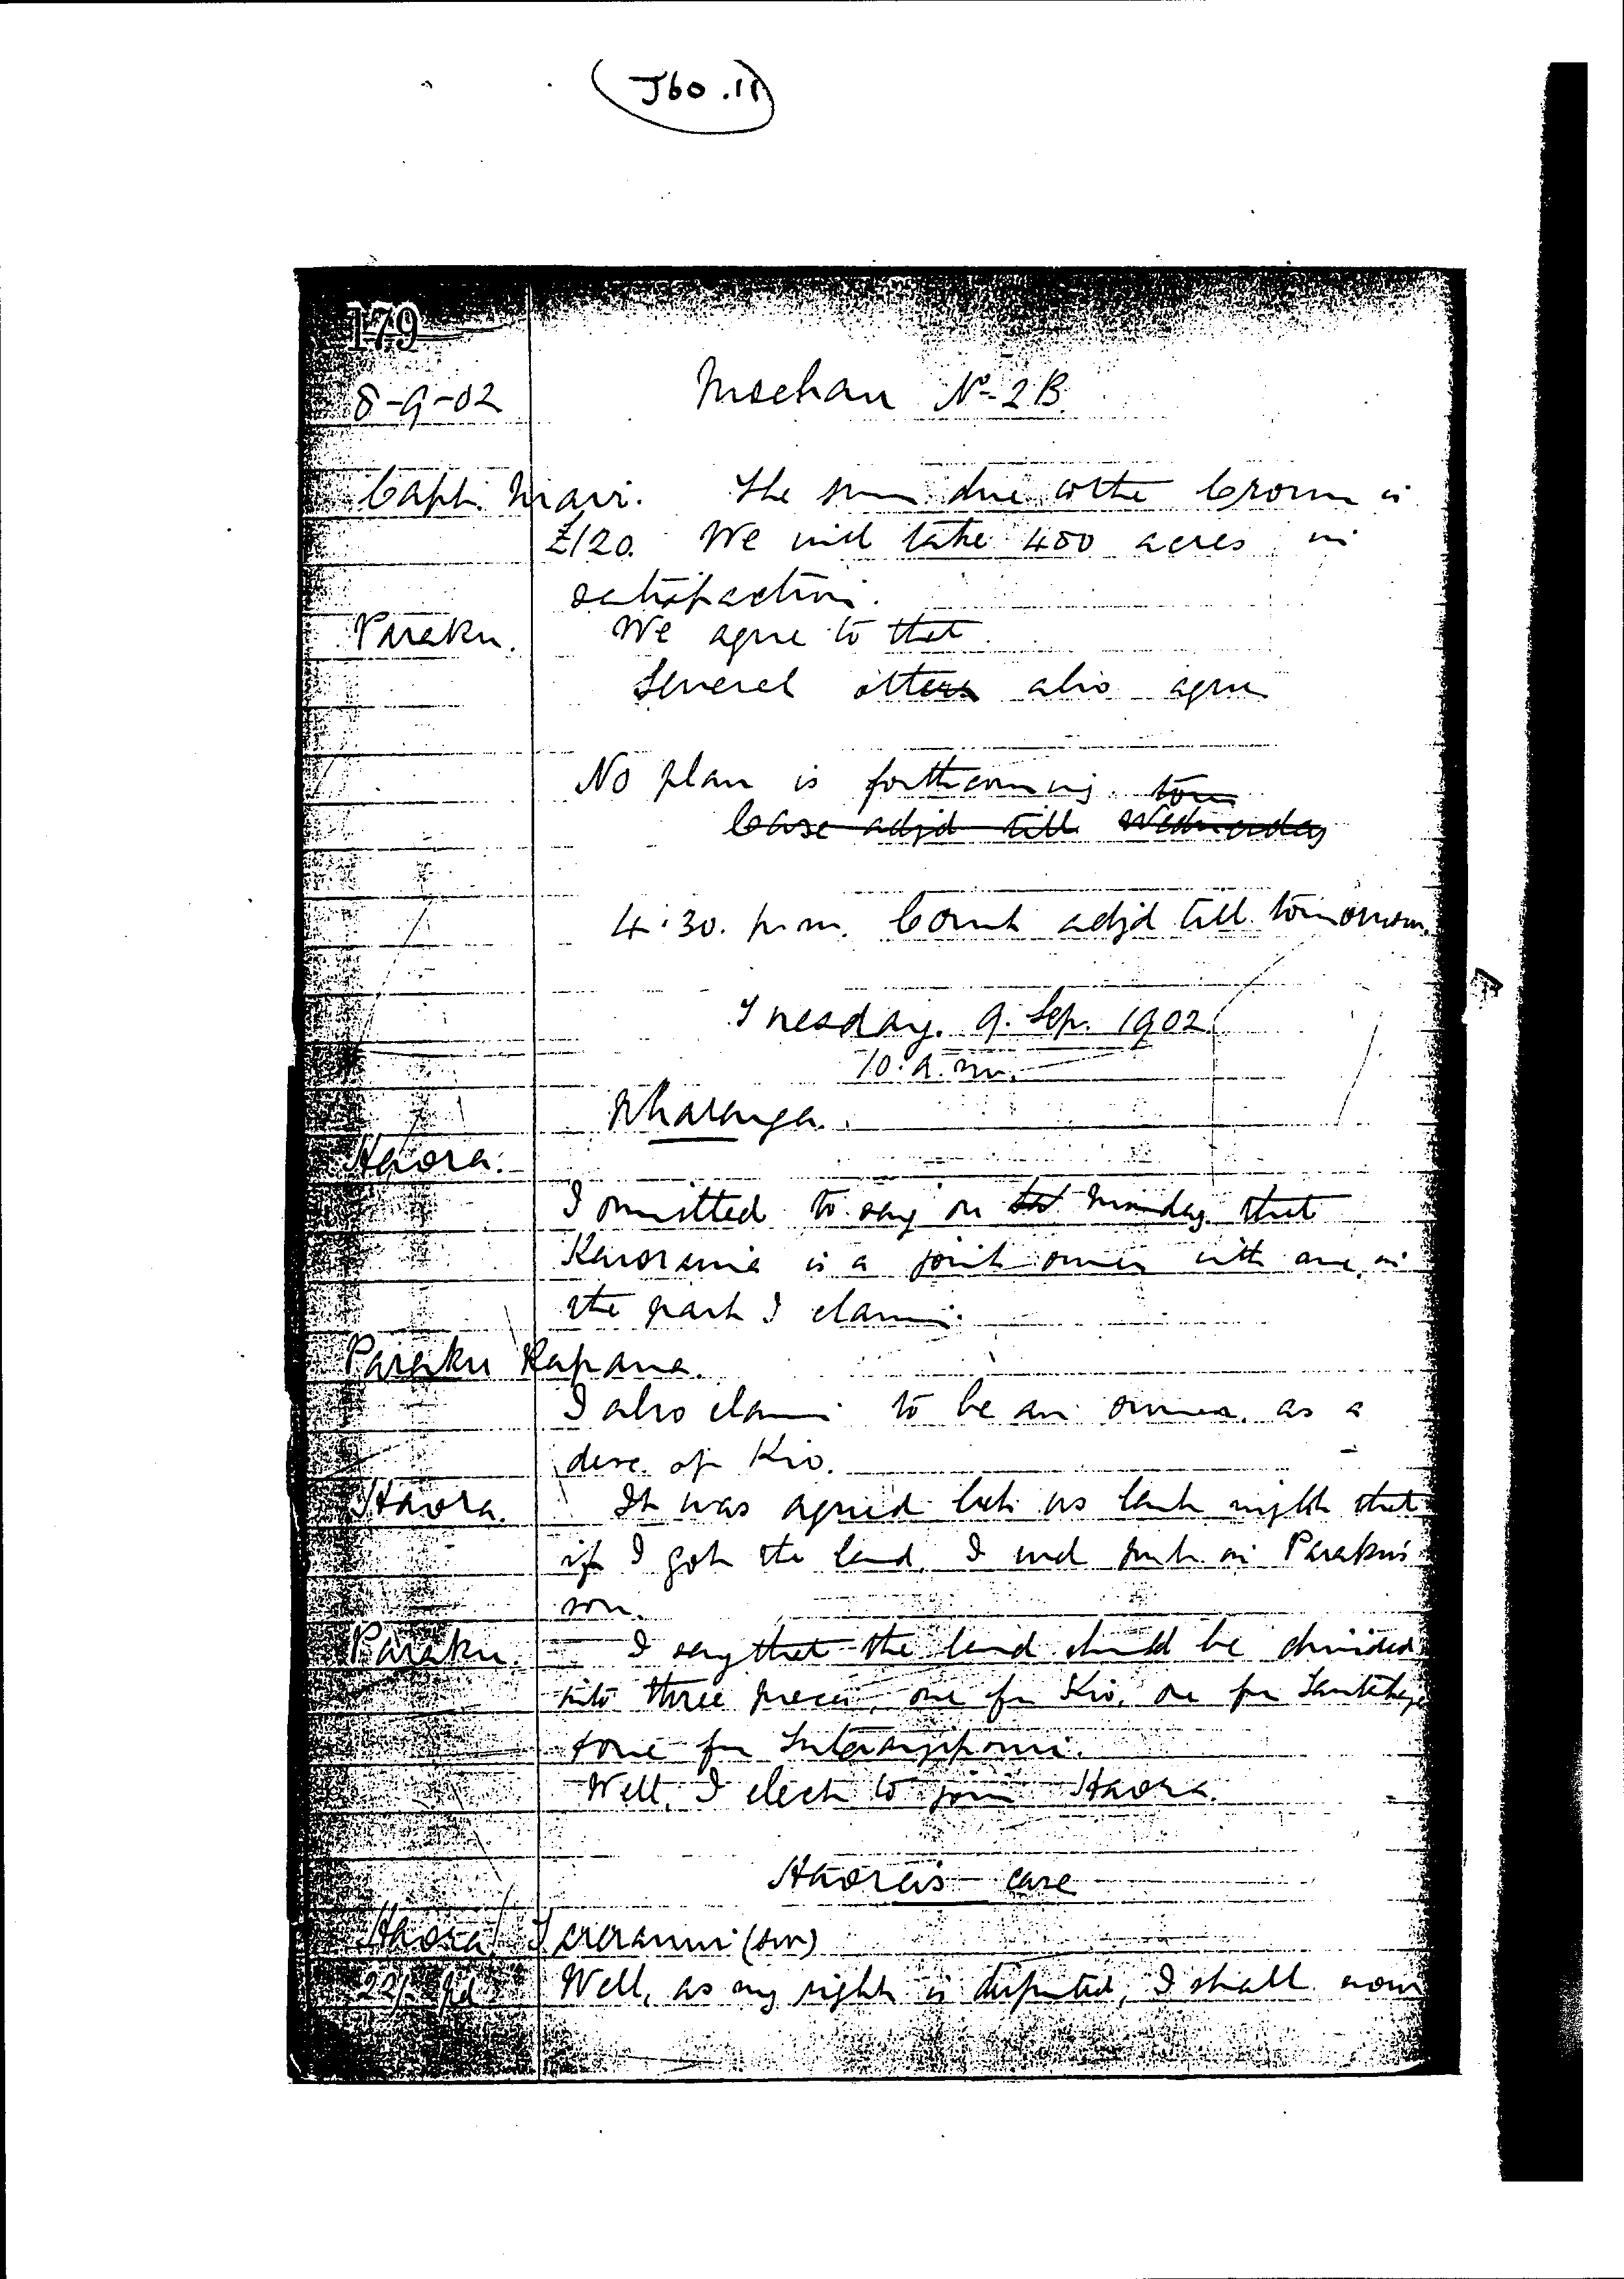 J60.11
179
8-9-02
Moehau No 2B.
Capt. Mair. The sum due to the Crown is
£120. We will take 400 acres in
satisfaction.
Paraku. We agree to that.
Several others also agree
No plan is forthcoming. tom
Case adjd till Wednesday
4.30. p.m. Court adjd till tomorrow.
Tuesday. 9. Sep. 1902.
10. a.m.
Wharanga.
Haora.
I omitted to say on Monday that
is a joint owner with me in
the part I claim.
Paraku Rapana.
I also claim to be an owner. as a
desc. of Kio.
Haora. It was agreed bet. us last night that
if I got the land, I wd put in Paraku's
son.
Paraku. I say that the land should be divided
into three pieces, one for Kio, one for
+ one for
Well, I elect to join Haora.
Haora's case
Haora (sw)
Well, as my right is disputed, I shall now